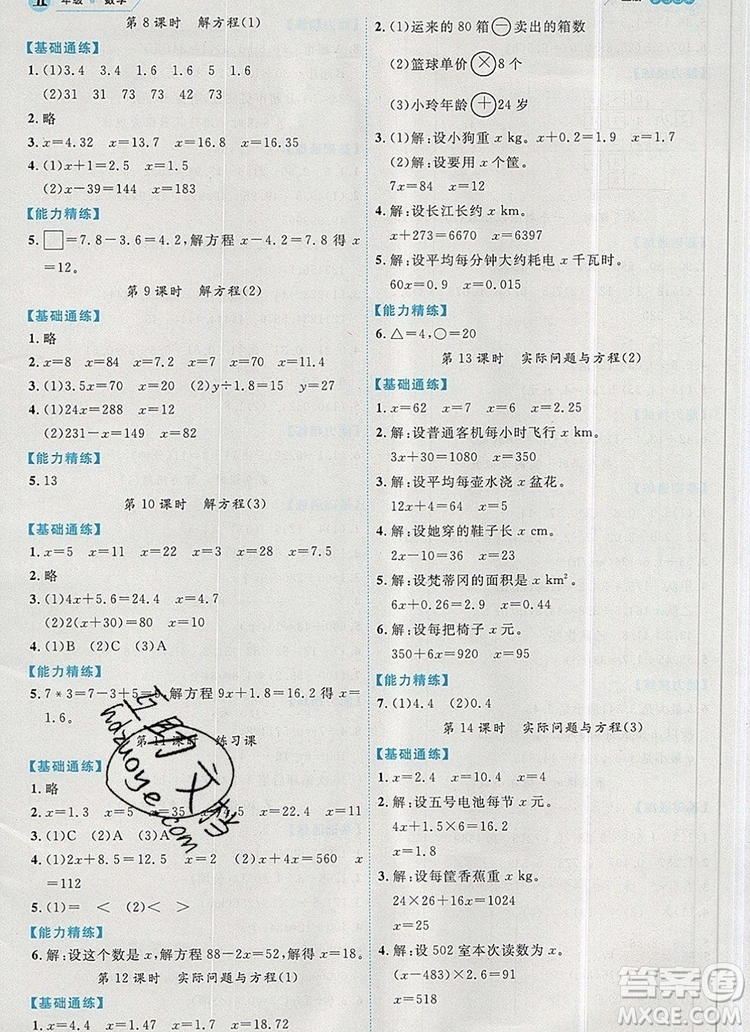 五年级·数学
第8课时 解方程(1)
【基础通练】
1.(1)3.4 3.4 1.6 1.6 5 1.6
(2)31 31 73 42 73
2.略
3.x=4.32 x=13.7 x=16.8 x=16.35
4.(1)x+1=2.5 x=1.5
(2)x-39=144 x=183
【能力精练】
5.□=7.8-3.6=4.2,解方程 x-4.2=7.8 得 x
=12。
第9课时 解方程(2)
【基础通练】
1.略
2.x=8 x=84 x=36 x=7 x=87 x=11.4
3.(1)3.5x=70 x=20 (2)y÷1.8=15 y=27
4.(1)24x=288 x=12
(2)231-x=149 x=82
【能力精练】
5.13
第10课时 解方程(3)
【基础通练】
1.x=5 x=11 x=22 x=3 x=28 x=7.5
2.略
3.(1)4x+5.6=24.4 x=4.7
(2)2(x-30)=100 x=80
4.(1)B (2)C (3)A
【能力精练】
5.7*3=7-3+5=9,解方程 9x+1.8=16.2 得 x=
1.6。
第11课时 练习课
【基础通练】
1.略
2.x=1.3 x=5 x=35 x=22.5 x=22.4 x=11
3.(1)C (2)A (3)A
4.(1)2x+6=24 x=9 (2)x+4x=560 x=
112
5.(1)= < (2)< >
【能力精练】
6.解:设这个数是x,解方程 88-2x=52,解得 x=18。
第12课时 实际问题与方程(1)
【基础通练】
1.x=4.8 x=31 x=1.4 x=18.72
2.(1)运来的80箱⊖卖出的箱数
(2)篮球单价⊗8个
(3)小玲年龄⊕24岁
3.(1)解:设小狗重 x kg。 x+0.2=1.9 x=1.7
(2)解:设要用 x 个筐。
7x=84 x=12
4.解:设长江长约 x km。
x+273=6670 x=6397
5.解:设平均每分钟大约耗电 x 千瓦时。
60x=0.9 x=0.015
【能力精练】
6.△=4,○=20
第13课时 实际问题与方程(2)
【基础通练】
1.x=62 x=7 x=6 x=2.25
2.解:设普通客机每小时飞行 x km。
3x+30=2480 x=800
3.解:设平均每壶水浇 x 盆花。
12x+4=100 x=8
4.解:设她穿的鞋子长 x cm。
2x-10=38 x=24
5.解:设梵蒂冈的面积是 x km²。
6x+0.26=2.9 x=0.44
6.解:设每把椅子 x 元。
350+6x=920 x=95
【能力精练】
7.(1)4.4 (2)0.4
第14课时 实际问题与方程(3)
【基础通练】
1.x=4.2 x=5 x=2 x=5
2.解:设五号电池每节 x 元。
4x+1.8×5=16.2
x=1.8
3.解:设每筐香蕉重 x kg。
24×26+16x=1024
x=25
4.解:设502室本次读数为 x。
(x-483)×2.6=91
x=518
互助文档
hdzuoye.com
答案圈
MXQE.COM